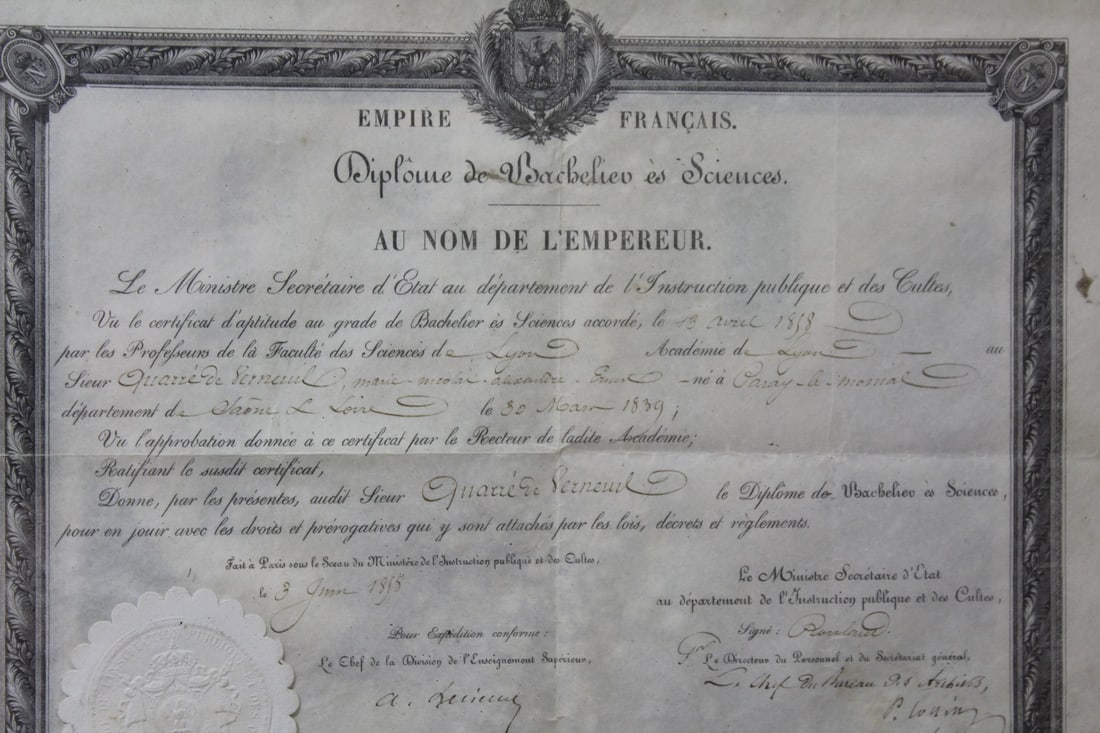 N
N
EMPIRE FRANÇAIS.
Diplôme de Bachelier ès Sciences.
AU NOM DE L'EMPEREUR.
Le Ministre Secrétaire d'Etat au département de l'Instruction publique et des Cultes,
Vu le certificat d'aptitude au grade de Bachelier ès Sciences accordé, le 13 avril 1858
par les Professeurs de la Faculté des Sciences de Lyon Académie de Lyon — au
Sieur Quarré de Verneuil, marie-nicolas-alexandre-Ernest - né à Paray-le-monial
département de Saône & Loire le 30 Mars 1839;
Vu l'approbation donnée à ce certificat par le Recteur de ladite Académie;
Ratifiant le susdit certificat,
Donne, par les présentes, audit Sieur Quarré de Verneuil le Diplôme de Bachelier ès Sciences,
pour en jouir avec les droits et prérogatives qui y sont attachés par les lois, décrets et règlements.
Fait à Paris sous le Sceau du Ministère de l'Instruction publique et des Cultes,
le 3 Juin 1858
Le Ministre Secrétaire d'Etat
au département de l'Instruction publique et des Cultes,
Signé: Rouland.
Pour Expédition conforme:
Le Chef de la Division de l'Enseignement Supérieur,
Pr Le Directeur du Personnel et du Secrétariat général,
Le Chef du Bureau des Archives,